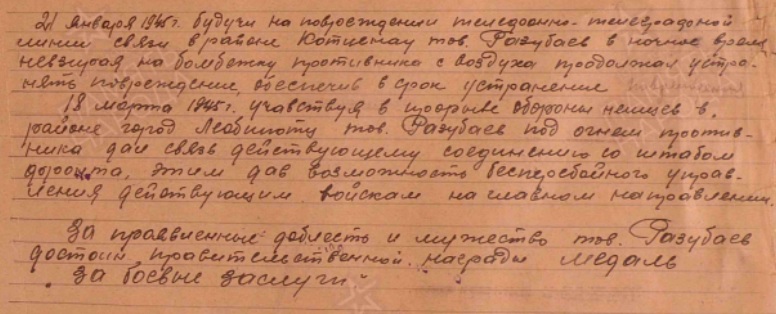 21 января 1945 г. будучи на повреждении телефонно-телеграфной
линии связи в районе тов. Разубаев в ночное время
невзирая на бомбежку противника с воздуха продолжал устра-
нять повреждение, обеспечив в срок устранение
18 марта 1945 г. участвуя в прорыве обороны немцев в
районе город Леобшютц тов. Разубаев под огнем против-
ника дал связь действующему соединению со штабом
фронта, этим дав возможность бесперебойного управ-
ления действующим войскам на главном направлении.
За проявленные доблесть и мужество тов. Разубаев
достоин правительственной награды медаль
"За боевые заслуги"